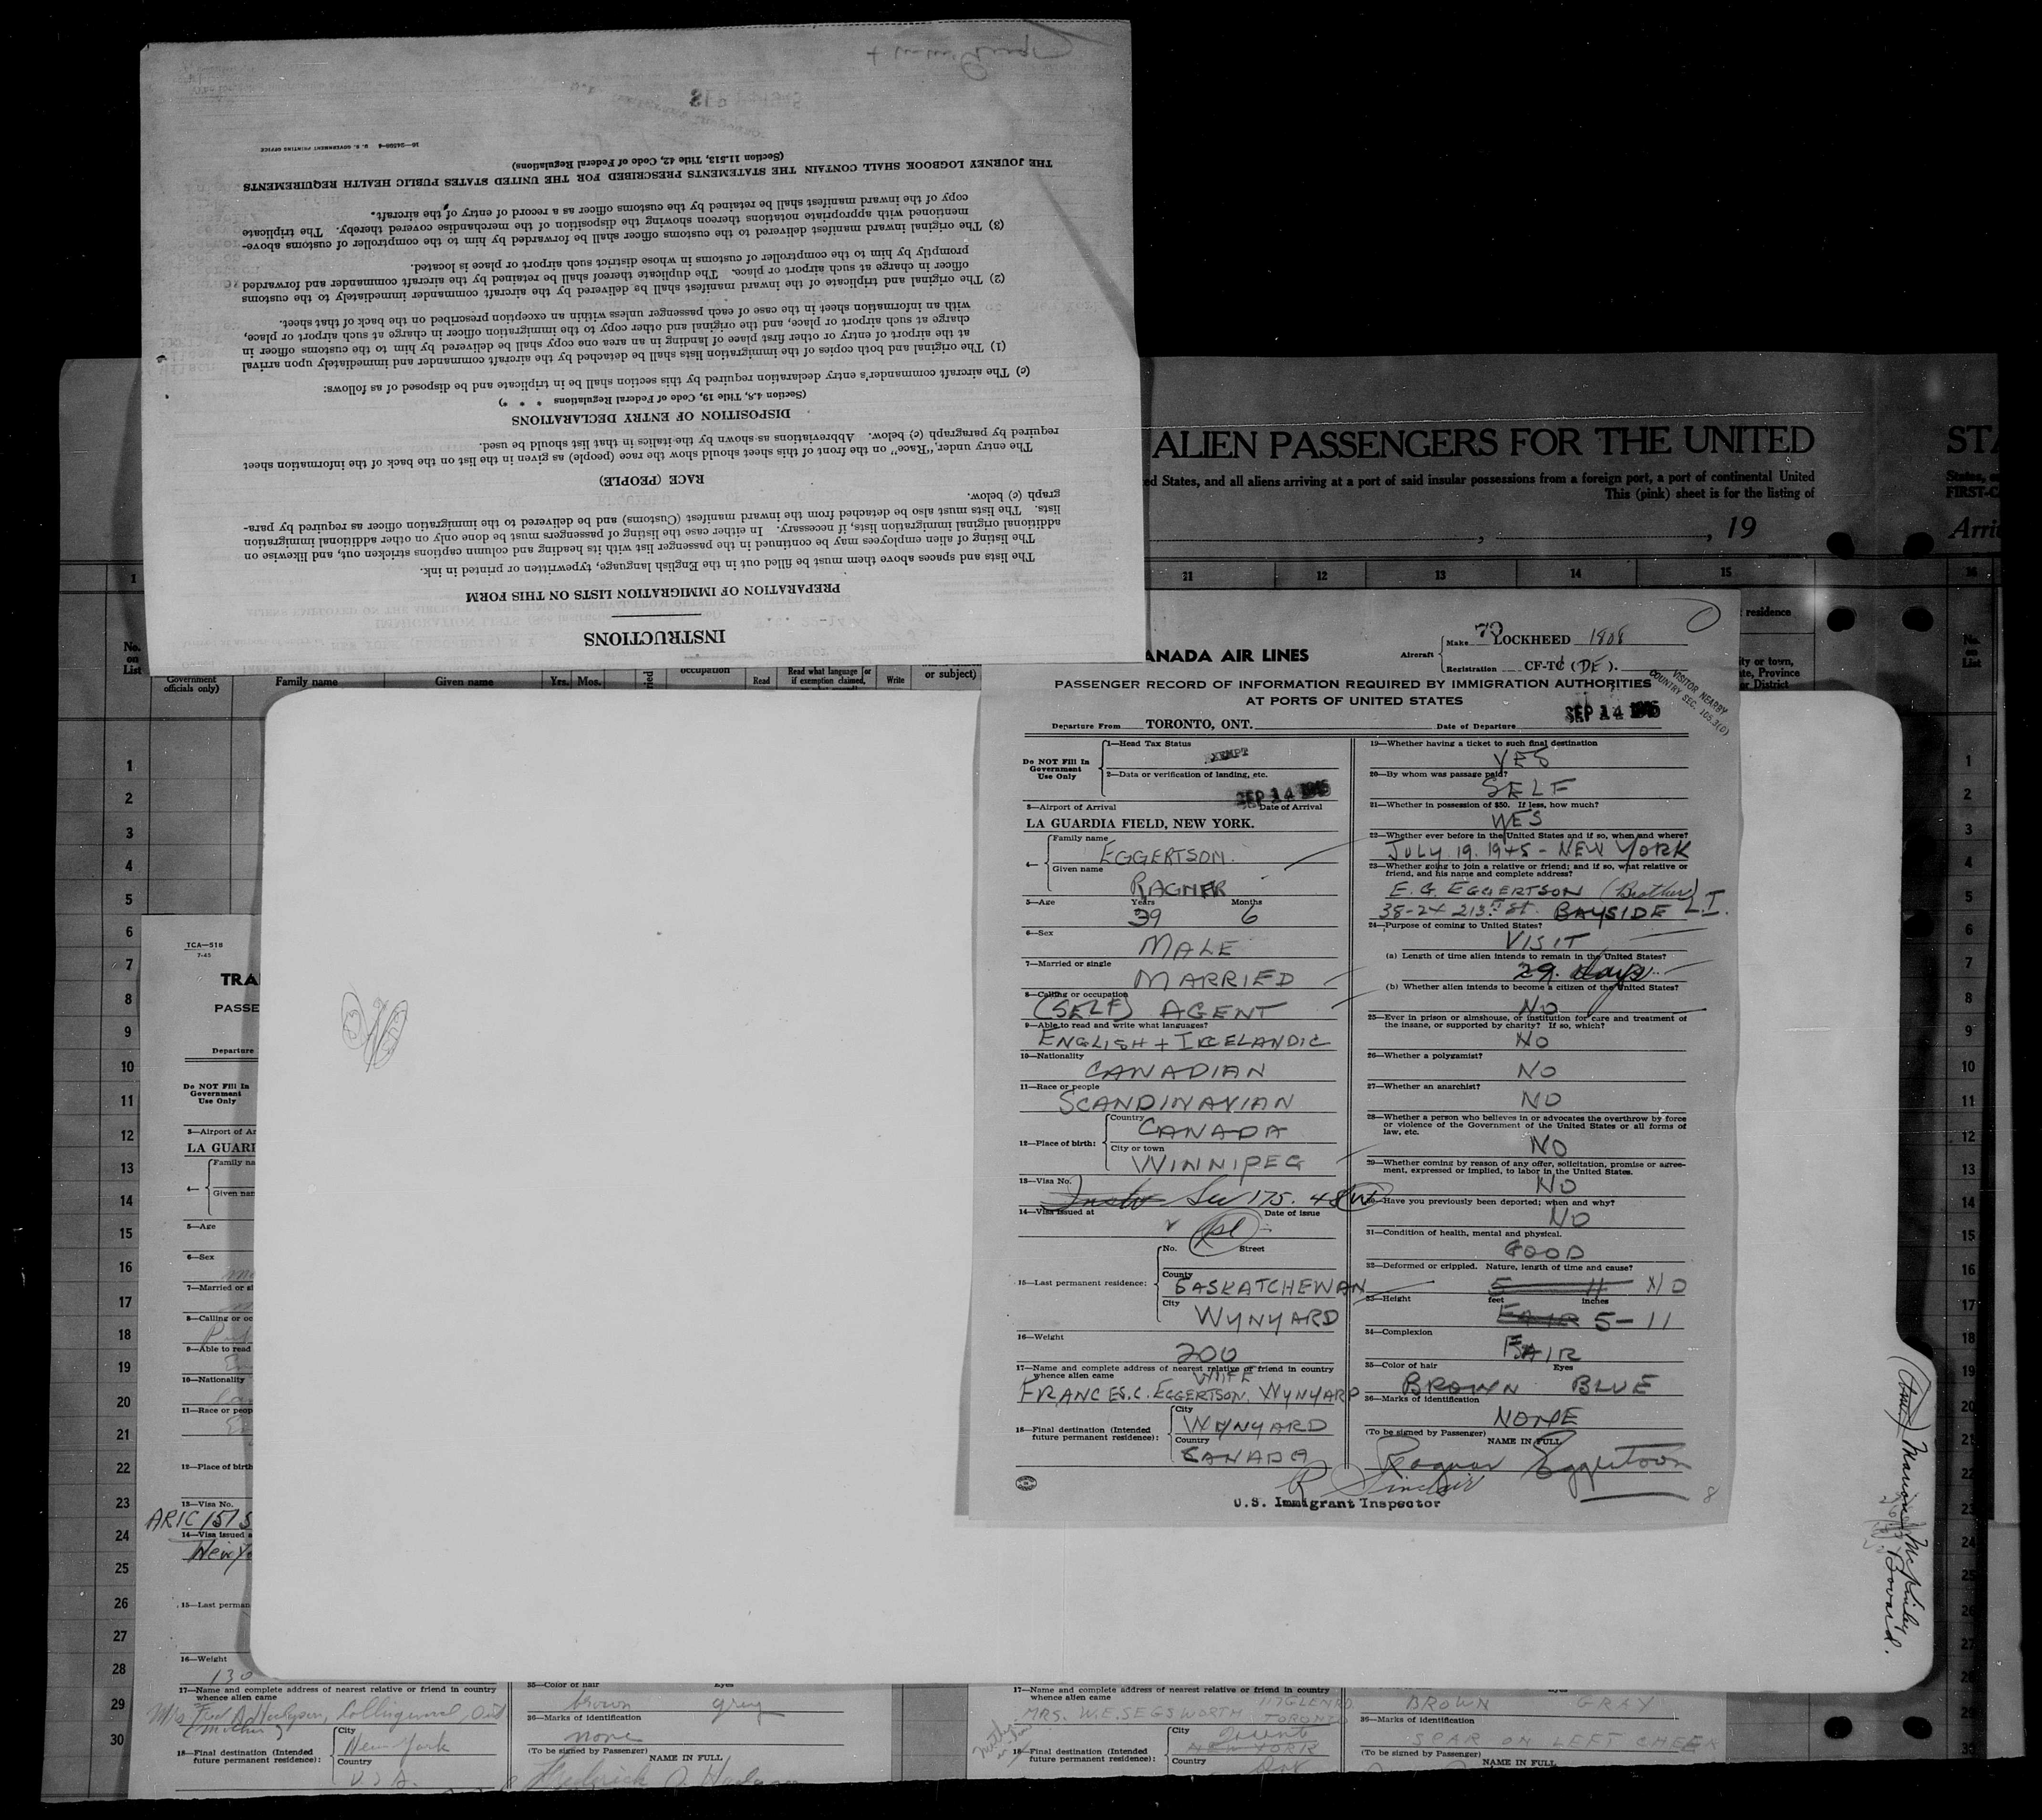 INSTRUCTIONS
PREPARATION OF IMMIGRATION LISTS ON THIS FORM
The lists and spaces above them must be filled out in the English language, typewritten or printed in ink.
The listing of alien employees may be continued in the passenger list with its heading and column captions stricken out, and likewise on
additional original immigration lists, if necessary. In either case the listing of passengers must be done only on other additional immigration
lists. The lists must also be detached from the inward manifest (Customs) and be delivered to the immigration officer as required by para-
graph (c) below.
RACE (PEOPLE)
The entry under "Race" on the front of this sheet should show the race (people) as given in the list on the back of the information sheet
required by paragraph (c) below. Abbreviations as shown by the italics in that list should be used.
DISPOSITION OF ENTRY DECLARATIONS
(Section 4.8, Title 19, Code of Federal Regulations * * *)
(c) The aircraft commander's entry declaration required by this section shall be in triplicate and be disposed of as follows:
(1) The original and both copies of the immigration lists shall be detached by the aircraft commander and immediately upon arrival
at the airport of entry or other first place of landing in an area one copy shall be delivered by him to the customs officer in
charge at such airport or place, and the original and other copy to the immigration officer in charge at such airport or place,
with an information sheet in the case of each passenger unless within an exception prescribed on the back of that sheet.
(2) The original and triplicate of the inward manifest shall be delivered by the aircraft commander immediately to the customs
officer in charge at such airport or place. The duplicate thereof shall be retained by the aircraft commander and forwarded
promptly by him to the comptroller of customs in whose district such airport or place is located.
(3) The original inward manifest delivered to the customs officer shall be forwarded by him to the comptroller of customs above-
mentioned with appropriate notations thereon showing the disposition of the merchandise covered thereby. The triplicate
copy of the inward manifest shall be retained by the customs officer as a record of entry of the aircraft.
THE JOURNEY LOGBOOK SHALL CONTAIN THE STATEMENTS PRESCRIBED FOR THE UNITED STATES PUBLIC HEALTH REQUIREMENTS
(Section 11.513, Title 42, Code of Federal Regulations)
U. S. GOVERNMENT PRINTING OFFICE
ALIEN PASSENGERS FOR THE UNITED STA
ed States, and all aliens arriving at a port of said insular possessions from a foreign port, a port of continental United
This (pink) sheet is for the listing of FIRST-C
, 19 Arri
1 21 12 13 14 15 16
No. on List
Government officials only)
Family name Given name Yrs. Mos. occupation Read Read what language [or if exemption claimed, Write or subject)
residence
ity or town,
te, Province
r District
No. on List
ANADA AIR LINES
Aircraft Make 70 LOCKHEED 1808
Registration CF-TC (DE).
PASSENGER RECORD OF INFORMATION REQUIRED BY IMMIGRATION AUTHORITIES
AT PORTS OF UNITED STATES
VISITOR NEARBY
COUNTRY SEC. 105.3(D)
Departure From TORONTO, ONT. Date of Departure SEP 14 1945
Do NOT Fill In Government Use Only
1—Head Tax Status EXEMPT
2—Data or verification of landing, etc.
3—Airport of Arrival SEP 14 1945 Date of Arrival
LA GUARDIA FIELD, NEW YORK.
4— Family name EGGERTSON
Given name RAGNER
5—Age Years 39 Months 6
6—Sex MALE
7—Married or single MARRIED
8—Calling or occupation (SELF) AGENT
9—Able to read and write what languages? ENGLISH + ICELANDIC
10—Nationality CANADIAN
11—Race or people SCANDINAVIAN
12—Place of birth: Country CANADA
City or town WINNIPEG
13—Visa No. Sec 175. 48(W)
14—Visa issued at Date of issue
15—Last permanent residence: No. Street
County SASKATCHEWAN
City WYNYARD
16—Weight 200
17—Name and complete address of nearest relative or friend in country whence alien came WIFE
FRANCES. C. EGGERTSON. WYNYARD
18—Final destination (Intended future permanent residence): City WYNYARD
Country CANADA
19—Whether having a ticket to such final destination YES
20—By whom was passage paid? SELF
21—Whether in possession of $50. If less, how much? YES
22—Whether ever before in the United States and if so, when and where?
JULY. 19. 1945 - NEW YORK
23—Whether going to join a relative or friend; and if so, what relative or friend, and his name and complete address?
E. G. EGGERTSON (Brother)
38-24 213th St. BAYSIDE L.I.
24—Purpose of coming to United States? VISIT
(a) Length of time alien intends to remain in the United States? 29. days
(b) Whether alien intends to become a citizen of the United States? NO
25—Ever in prison or almshouse, or institution for care and treatment of the insane, or supported by charity? If so, which? NO
26—Whether a polygamist? NO
27—Whether an anarchist? NO
28—Whether a person who believes in or advocates the overthrow by force or violence of the Government of the United States or all forms of law, etc. NO
29—Whether coming by reason of any offer, solicitation, promise or agreement, expressed or implied, to labor in the United States. NO
30—Have you previously been deported; when and why? NO
31—Condition of health, mental and physical. GOOD
32—Deformed or crippled. Nature, length of time and cause? 5 11 NO
33—Height feet inches FAIR 5-11
34—Complexion FAIR
35—Color of hair BROWN Eyes BLUE
36—Marks of identification NONE
(To be signed by Passenger) NAME IN FULL
Ragnar Eggertson
R Sinclair
U.S. Immigrant Inspector
8
TCA—518
7-45
TRA
PASSE
Departure
Do NOT Fill In Government Use Only
3—Airport of Ar
LA GUARI
4— Family na
Given nam
5—Age
6—Sex
7—Married or si
8—Calling or oc
9—Able to read
10—Nationality
11—Race or peop
12—Place of birth
13—Visa No.
ARIC 1515
14—Visa issued a
New Yo
15—Last perman
16—Weight
130
17—Name and complete address of nearest relative or friend in country whence alien came
Collingwood, Ont
(mother)
18—Final destination (Intended future permanent residence): City New York
Country U.S.A.
35—Color of hair brown Eyes grey
36—Marks of identification none
(To be signed by Passenger) NAME IN FULL
17—Name and complete address of nearest relative or friend in country whence alien came
MRS. W.E. SEGSWORTH TORONTO
18—Final destination (Intended future permanent residence): City NEW YORK
Country
BROWN GRAY
36—Marks of identification
SCAR ON LEFT CHEEK
(To be signed by Passenger) NAME IN FULL
Marion McKinley
Bovard.
1
2
3
4
5
6
7
8
9
10
11
12
13
14
15
16
17
18
19
20
21
22
23
24
25
26
27
28
29
30